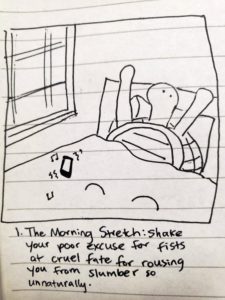 1. The Morning Stretch: shake
your poor excuse for fists
at cruel fate for rousing
you from slumber so
unnaturally.